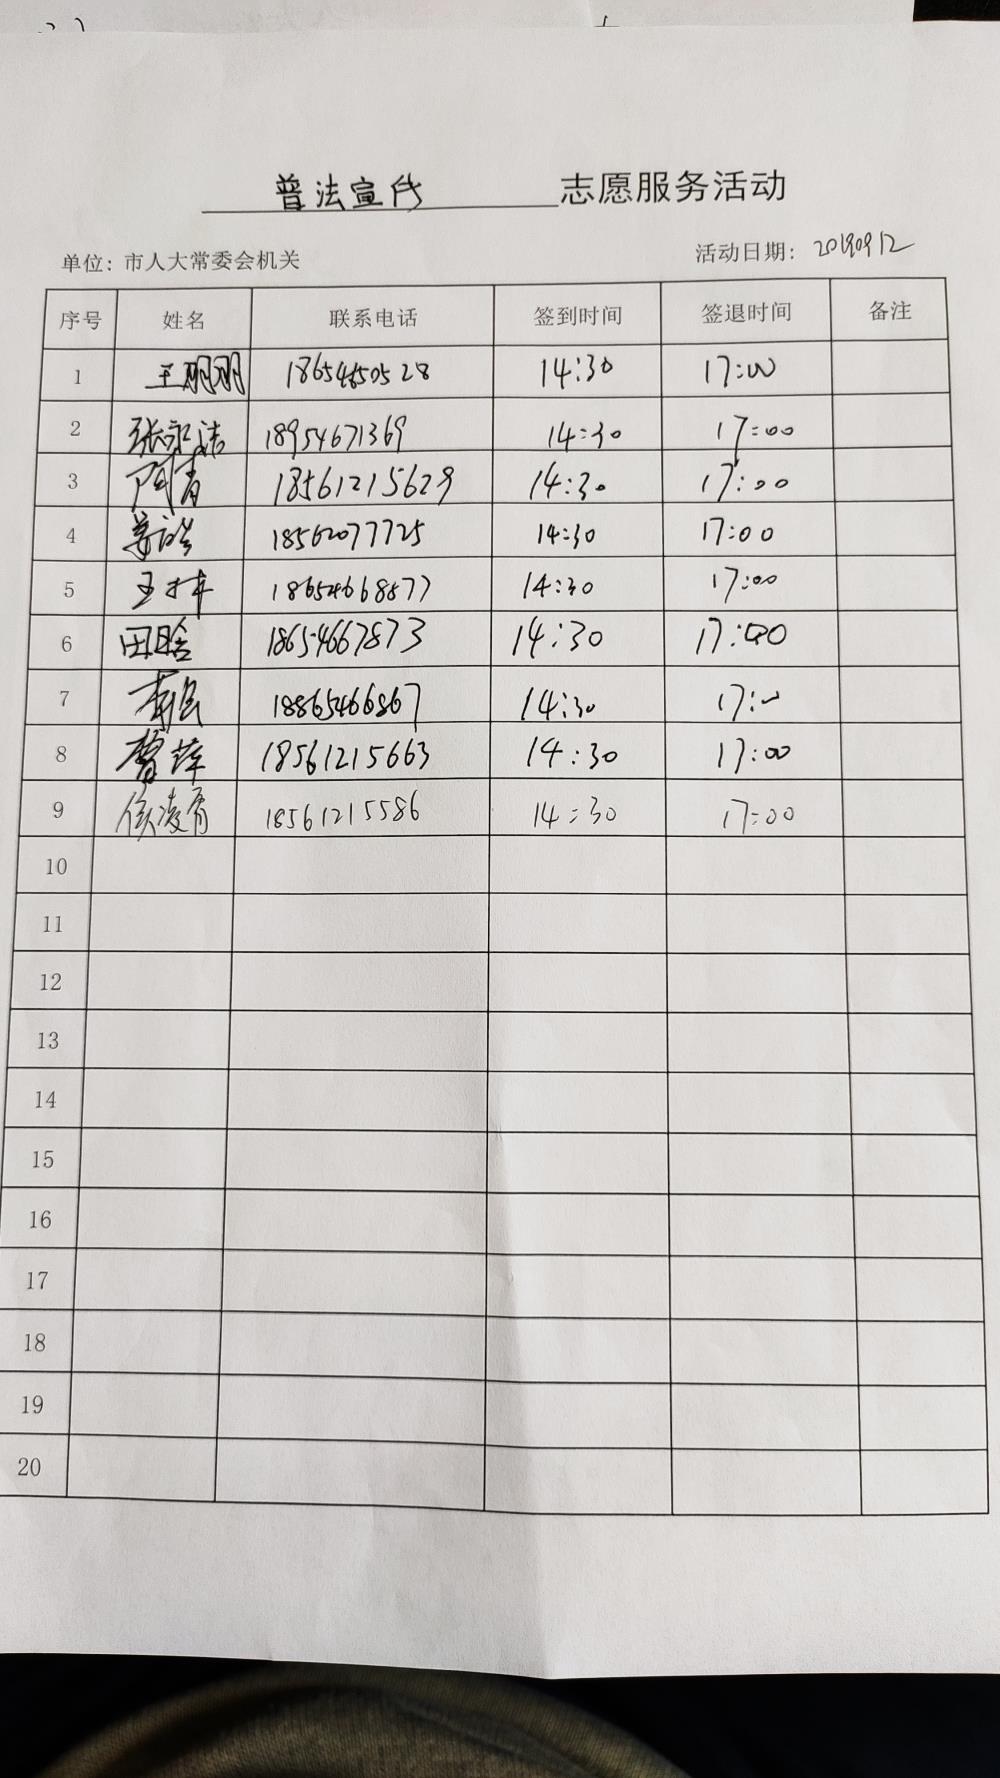 普法宣传 志愿服务活动
单位：市人大常委会机关 活动日期：20190912
序号 姓名 联系电话 签到时间 签退时间 备注
1 王朋朋 18654650528 14:30 17:00
2 张永洁 18954671369 14:30 17:00
3 青 18561215629 14:30 17:00
4 姜浩 18562077725 14:30 17:00
5 王 18654668577 14:30 17:00
6 田晗 18654667873 14:30 17:00
7 18865466867 14:30 17:00
8 曹萍 18561215663 14:30 17:00
9 侯凌霄 18561215586 14:30 17:00
10
11
12
13
14
15
16
17
18
19
20